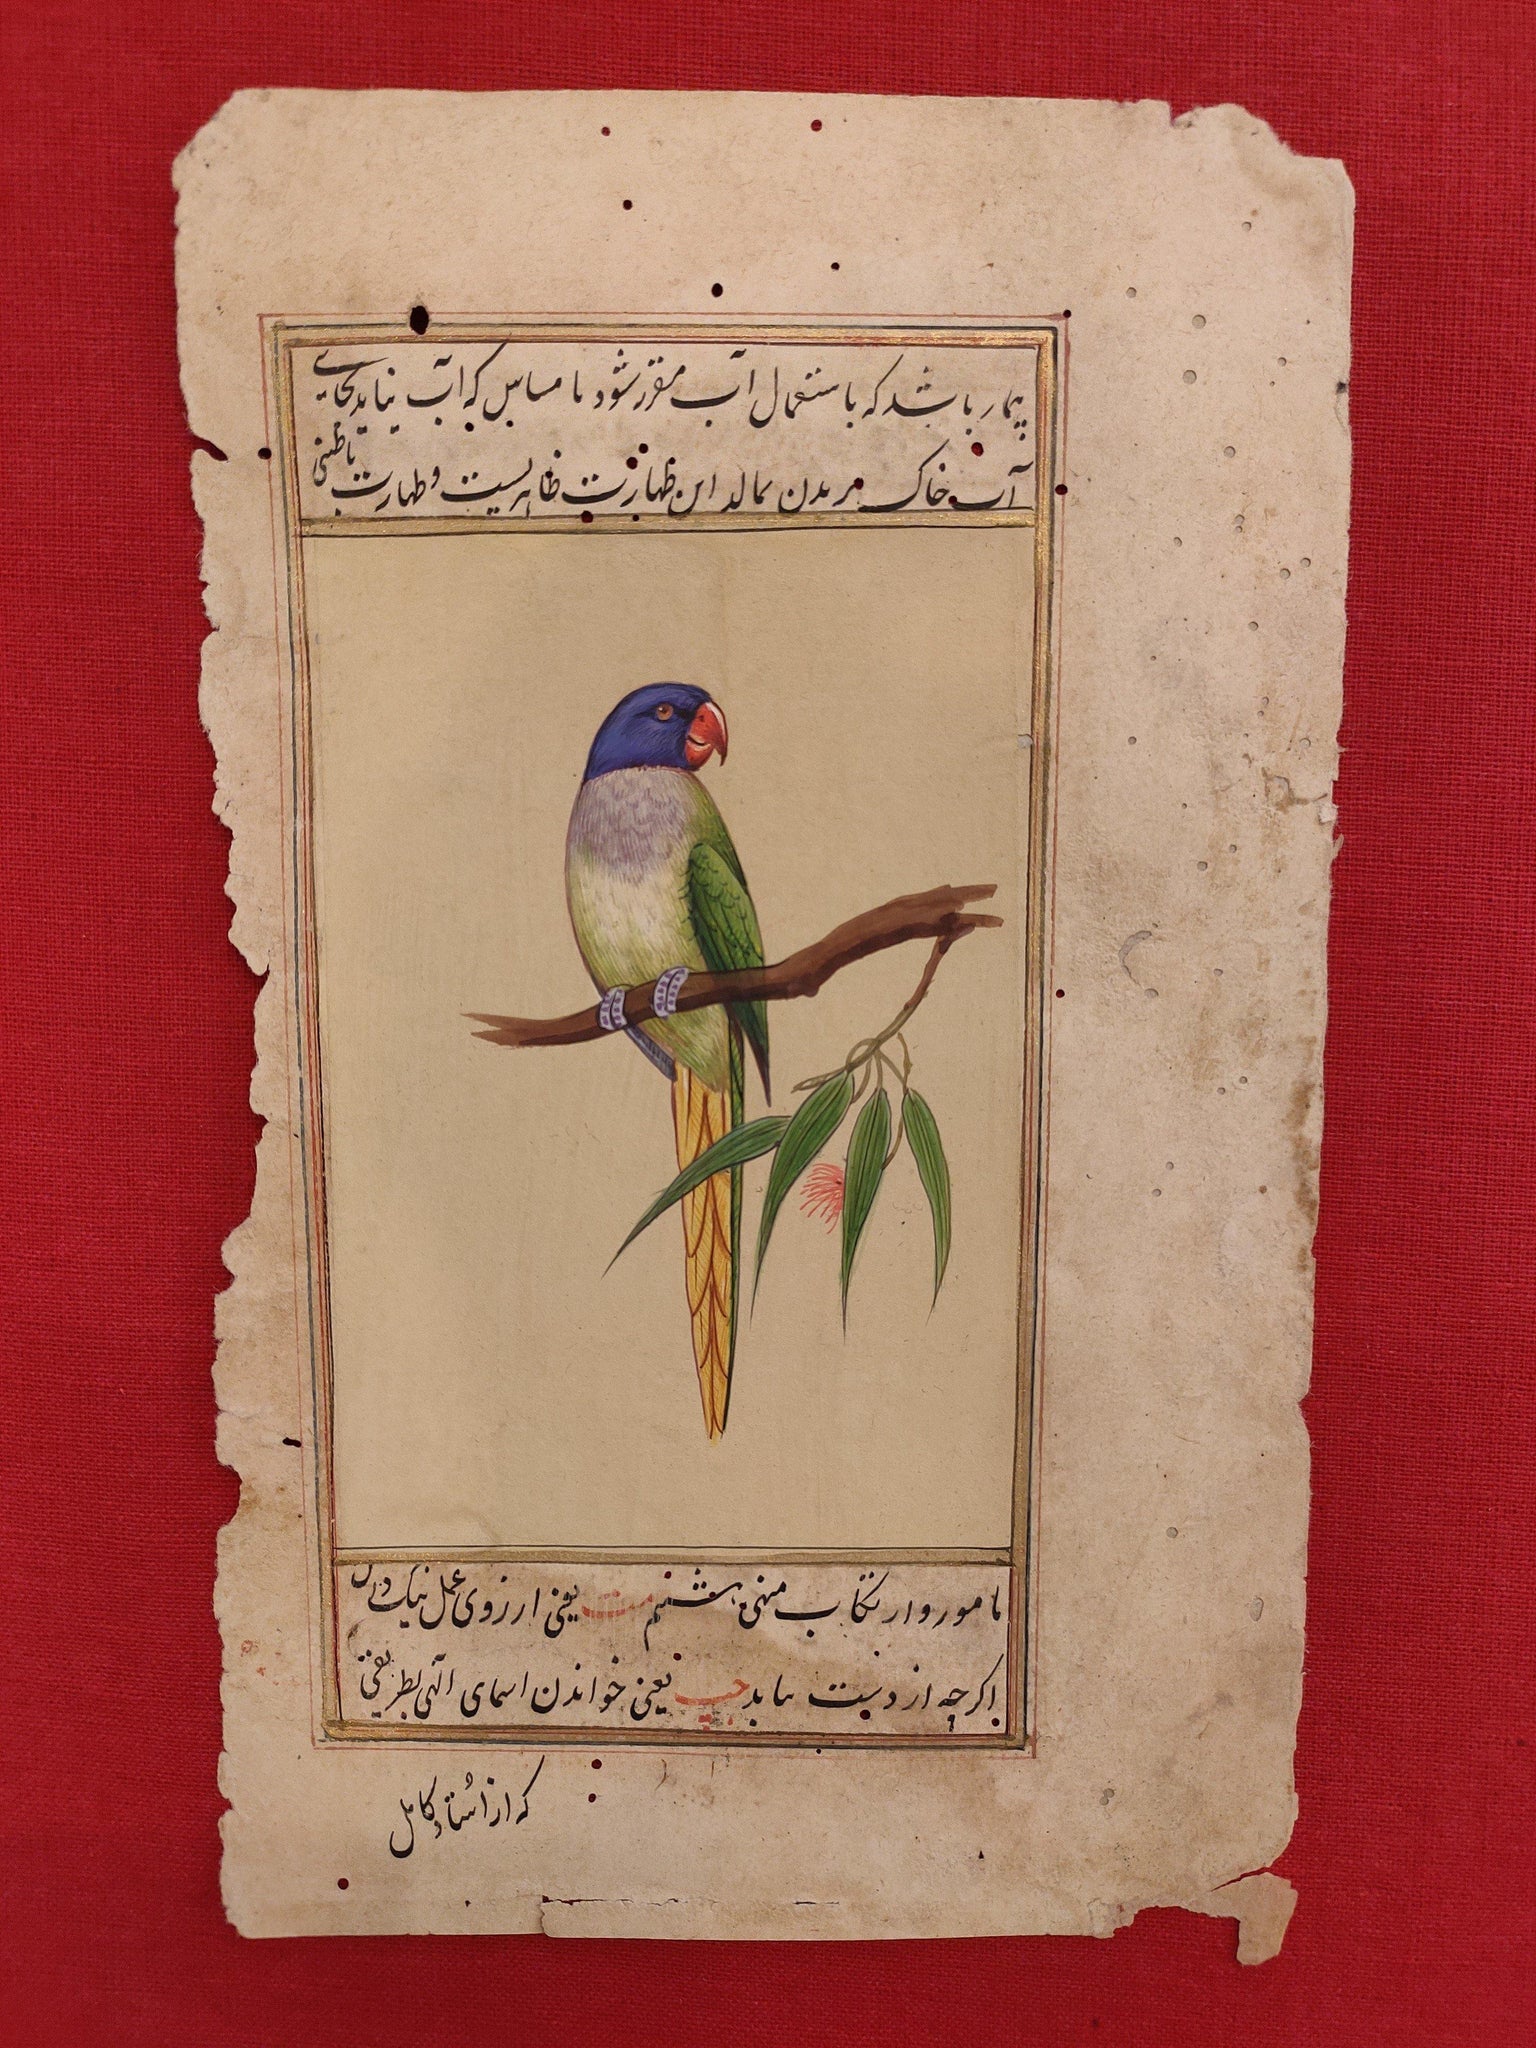 بیمار باشد که باستعمال آب مقرر شود یا مساس که آب نیاید بجای
آب خاک بر بدن بمالد این طهارت ظاهریست و طهارت باطنی
مامور و ارتکاب منهی هشتم مت یعنی ارزوی عمل نیک
اکرچه از دست نیاید جپ یعنی خواندن اسمای الهی بطریقی
که از استاد کامل